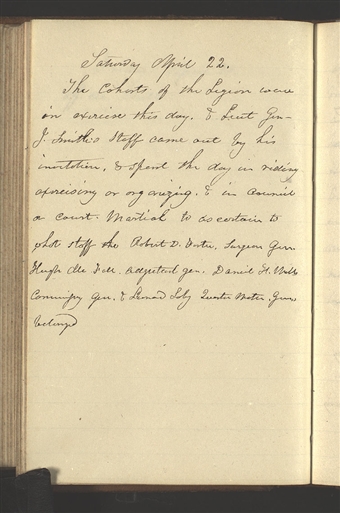 Saturday April 22.
The Cohorts of the Legion were
in exercise this day. & Lieut Gen-
J. Smith's Staff came out by his
invitation, & spent the day in riding
exercising or organizing. & in council
a court-Martial to ascertain to
what staff the Robert D. Foster, Surgeon Gen
Hugh Mc Fall. Adjutant gen. Daniel H. Wells
Commissary Gen. & Lenard Soby Quarter Master. Gen
belonged